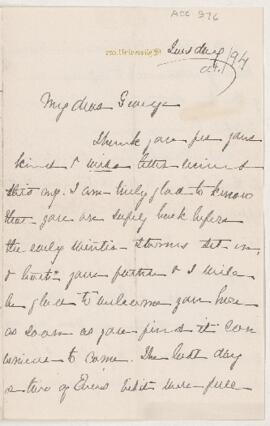 ACC 376
Tuesday /94
My dear George
Thank you for your
kind & letter
this I am truly glad to know
that you are safely back before
the early winter storms set in,
& both your father & I will
be glad to welcome you here
as soon as you find it con
venient to come. The last day
or two of visit were full